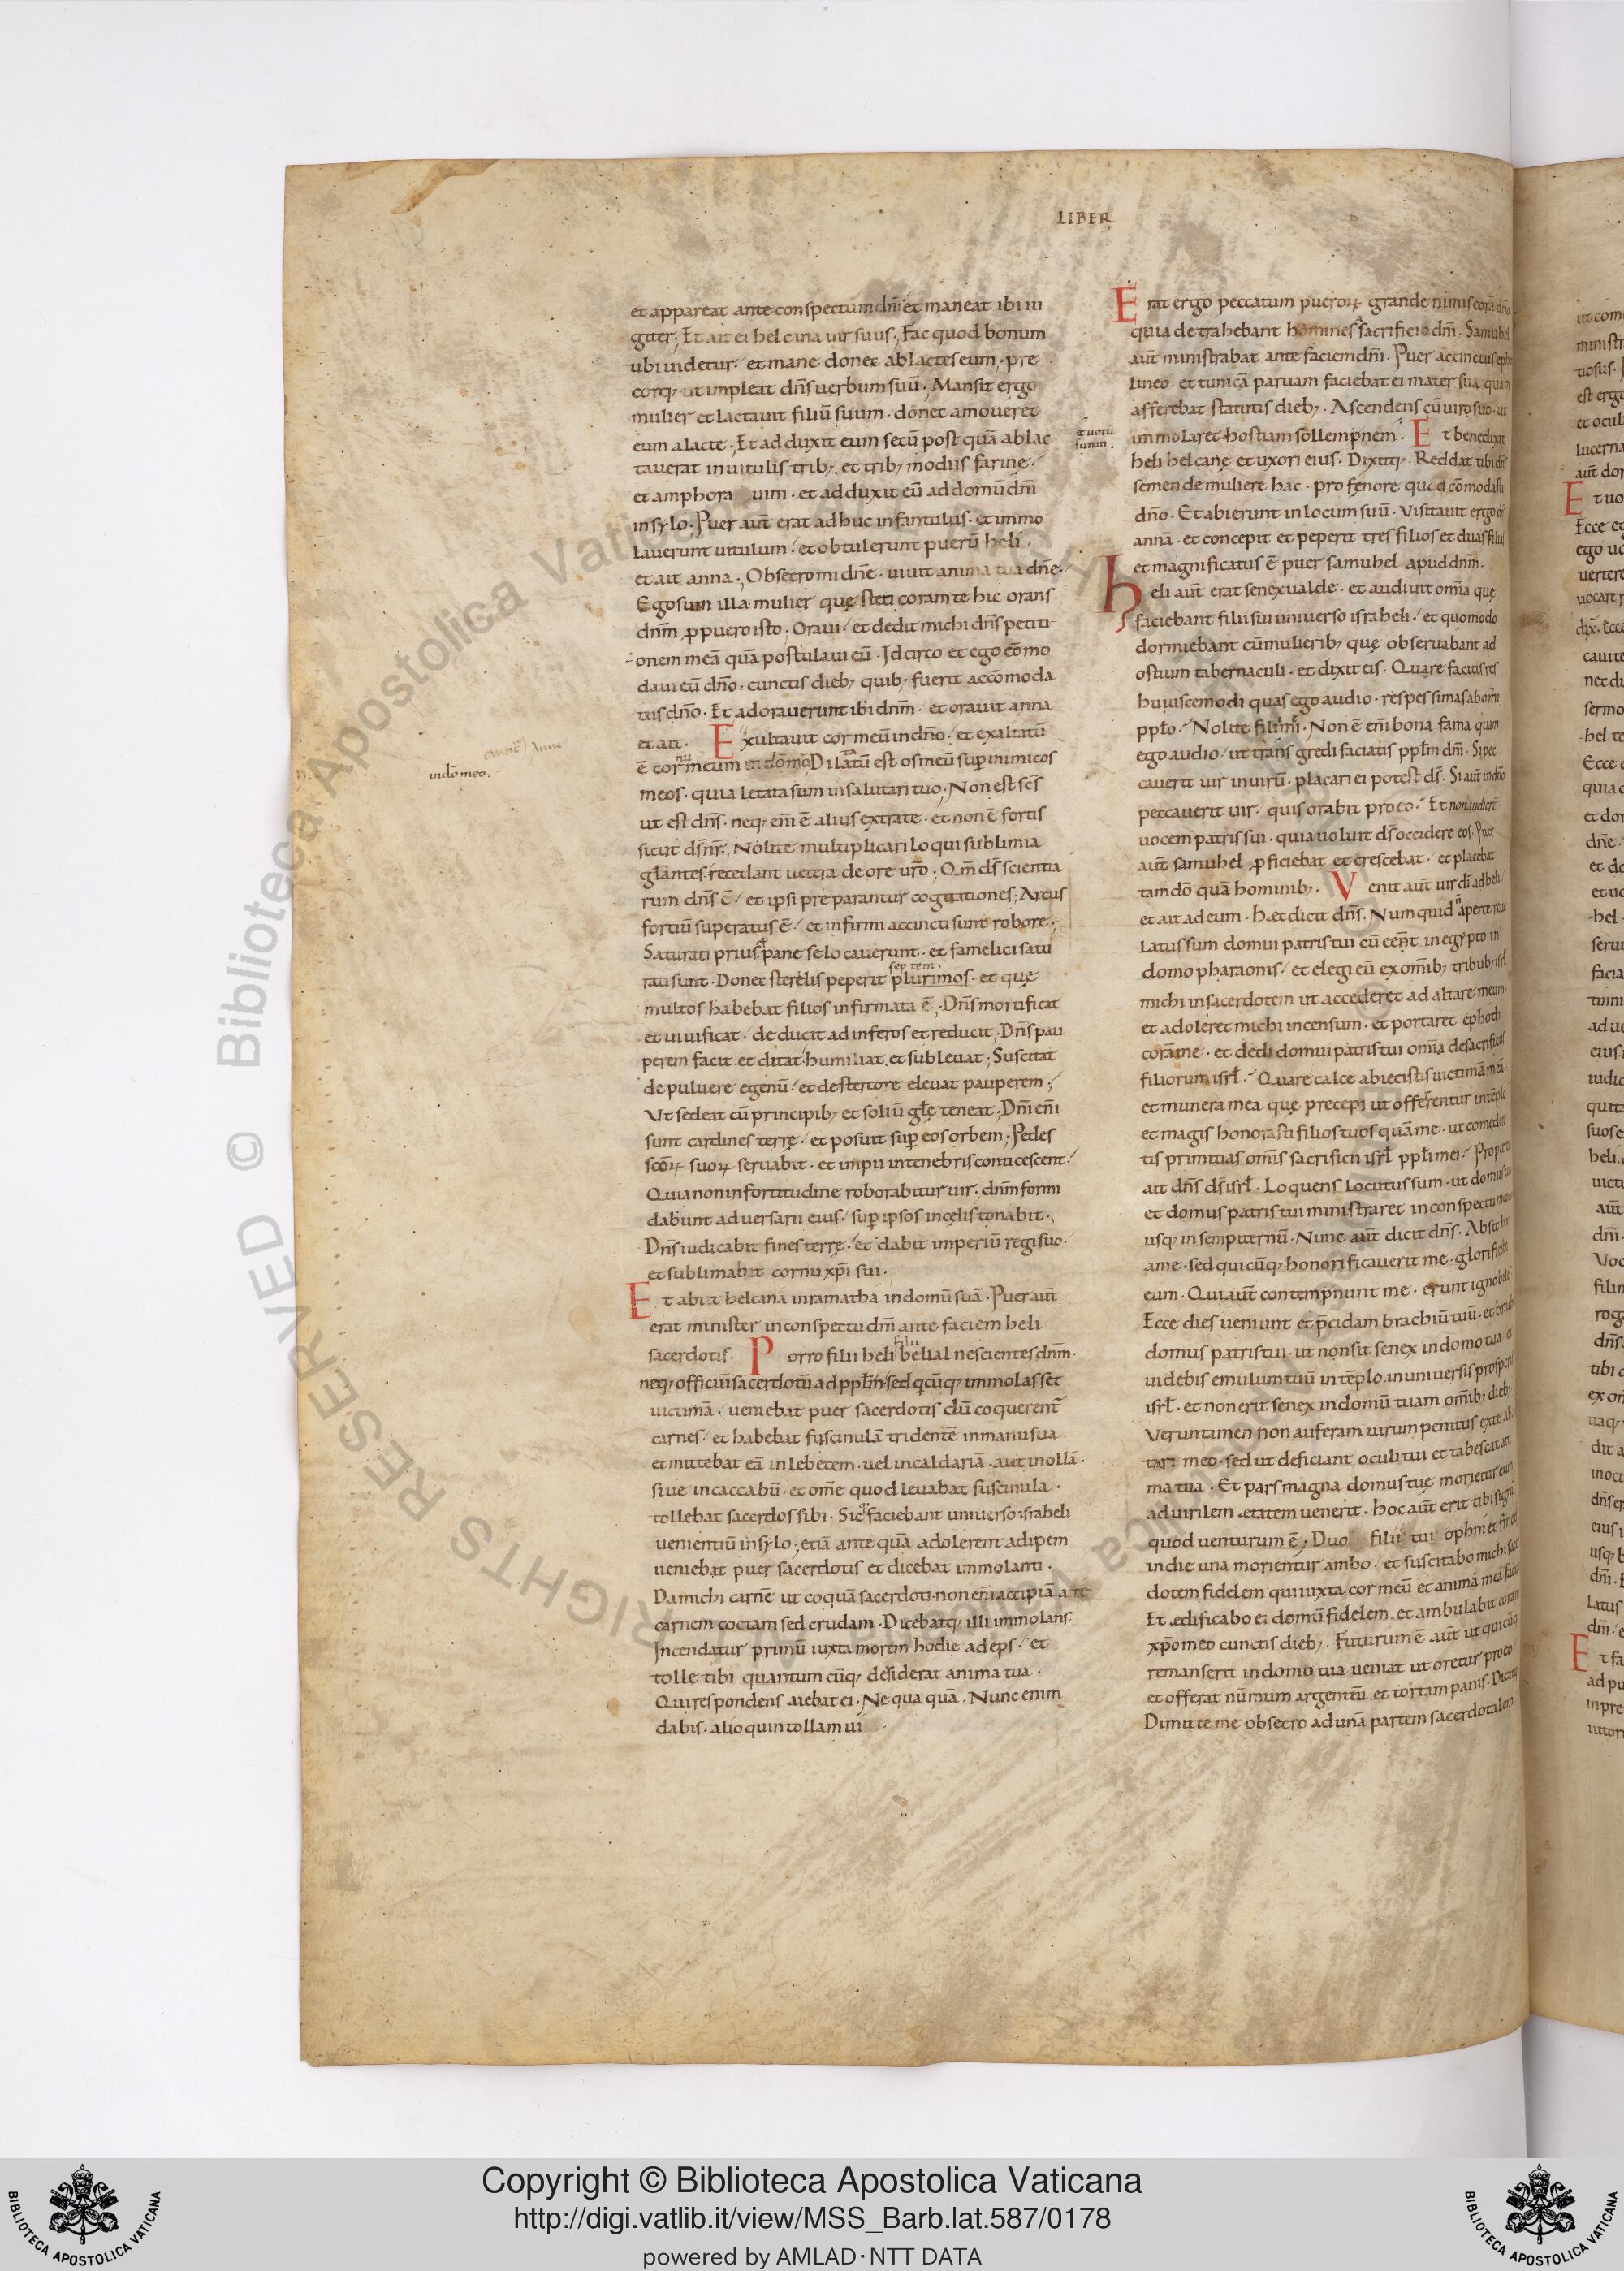 LIBER
et appareat ante conspectum dn̄i et maneat ibi iu
giter; Et ait ei helcana uir suus; Fac quod bonum
tibi uidetur· et mane donec ablactes eum· pre
corq; ut impleat dn̄s uerbum suū· Mansit ergo
mulier et lactauit filiū suum· donec amoueret
eum a lacte; Et adduxit eum secū post quā ablac
tauerat in uitulis trib; et trib; modiis farine·
et amphora uini· et adduxit eū ad domū dn̄i
in sylo· Puer aut̄ erat adhuc infantulus· et immo
lauerunt uitulum· et obtulerunt puerū heli·
et ait anna; Obsecro mi dn̄e· uiuit anima tua dn̄e·
Ego sum illa mulier quę steti coram te hic orans
dnm̄ ꝓ puero isto; Oraui· et dedit michi dn̄s petiti
onem meā quā postulaui eū· Idcirco et ego cōmo
daui eū dn̄o· cunctis dieb; quib; fuerit accōmoda
tus dn̄o· Et adorauerunt ibi dnm̄· et orauit anna
et ait· Exultauit cor meū in dn̄o· et exaltatū
ē cor meum in do meo Dilatatū est os meū sup̄ inimicos
in dō meo·
meos· quia letata sum in salutari tuo; Non est sc̄s
ut est dn̄s· neq; eni ē alius extra te· et non ē fortis
sicut ds̄ nr̄; Nolite multiplicari loqui sublimia
gl̄antes· recedant uetera de ore uro; Qm̄ ds̄ scientia
rum dn̄s ē· et ipsi preparantur cogitationes; Arcus
fortiū superatus ē· et infirmi accincti sunt robore·
Saturati prius p̄ pane se locauerunt· et famelici satu
septem·
rati sunt· Donec sterelis peperit plurimos· et quę
multos habebat filios infirmata ē; Dn̄s mortificat
et uiuificat· deducit ad inferos et reducit; Dn̄s pau
perem facit et ditat· humiliat et subleuat; Suscitat
de puluere egenū· et de stercore eleuat pauperem;
Ut sedeat cū principib; et soliū gl̄ę teneat; Dn̄i eni
sunt cardines terrę· et posuit sup̄ eos orbem; Pedes
sc̄oꝝ suoꝝ seruabit· et impii in tenebris conticescent·
Quia non in fortitudine roborabitur uir· dnm̄ formi
dabunt aduersarii eius· sup̄ ipsos in cęlis tonabit;
Dn̄s iudicabit fines terrę· et dabit imperiū regi suo·
et sublimabit cornu xp̄i sui·
Et abiit helcana in ramatha in domū suā· Puer aut̄
erat minister in conspectu dn̄i ante faciem heli
filii
sacerdotis· Porro filii heli belial nescientes dnm̄·
neq; officiū sacerdotū ad ppl̄m· sed qcūq; immolasset
uictimā· ueniebat puer sacerdotis dū coquerent̄
carnes· et habebat fuscinulā tridentē in manu sua·
et mittebat eā in lebetem· uel in caldariā· aut in ollā·
siue in caccabū· et om̄e quod leuabat fuscinula·
tollebat sacerdos sibi· Sic faciebant uniuerso israheli
uenientiū in sylo; etiā ante quā adolerent adipem
ueniebat puer sacerdotis et dicebat immolanti·
Da michi carnē ut coquā sacerdoti· non eni accipiā a te
carnem coctam sed crudam· Dicebatq; illi immolans·
Incendatur primū iuxta morem hodie adeps· et
tolle tibi quantum cūq; desiderat anima tua·
Qui respondens aiebat ei· Nequaquā· Nunc enim
dabis· alioquin tollam ui·
Erat ergo peccatum pueroꝝ grande nimis corā dn̄o
quia detrahebant homines a sacrificio dn̄i· Samuhel
aut̄ ministrabat ante faciem dn̄i· Puer accinctus eph
lineo· et tunicā paruam faciebat ei mater sua quam
afferebat statutis dieb;· Ascendens cū uiro suo· ut
et uotū
suum·
immolaret hostiam sollempnem· Et benedixit
heli helcanę et uxori eius· Dixitq;· Reddat tibi dn̄s
semen de muliere hac· pro fenore quod cōmodasti
dn̄o· Et abierunt in locum suū· Visitauit ergo ds̄
annā· et concepit et peperit tres filios et duas filias
et magnificatus ē puer samuhel apud dnm̄·
heli aut̄ erat senex ualde· et audiuit om̄ia quę
faciebant filii sui uniuerso israheli· et quomodo
dormiebant cū mulierib; quę obseruabant ad
ostium tabernaculi· et dixit eis· Quare facitis res
huiuscemodi quas ego audio· res pessimas ab om̄i
ppl̄o· Nolite filii mi· Non ē eni bona fama quam
ego audio· ut transgredi faciatis ppl̄m dn̄i· Si pec
cauerit uir in uirū· placari ei potest ds̄· Si aut̄ in dn̄o
peccauerit uir· quis orabit pro eo· Et non audierē
uocem patris sui· quia uoluit ds̄ occidere eos· Puer
aut̄ samuhel ꝓficiebat et crescebat· et placebat
tam dō quā hominib;· Venit aut̄ uir di ad heli
et ait ad eum· hęc dicit dn̄s· Numquid n̄ aperte reue
latus sum domui patris tui cū cent̄ in egypto in
domo pharaonis· et elegi eū ex om̄ib; tribub; isrl
michi in sacerdotem ut accederet ad altare meum·
et adoleret michi incensum· et portaret ephod
corā me· et dedi domui patris tui om̄ia de sacrificiis
filiorum isrl̄· Quare calce abiecistis uictimā meā
et munera mea quę precepi ut offerentur in tēplo
et magis honorasti filios tuos quā me· ut comeder
tis primitias om̄is sacrificii isrl̄ ppl̄i mei· Propterea
ait dn̄s ds̄ isrl̄· Loquens locutus sum· ut domus tua
et domus patris tui ministraret in conspectu meo
usq; in sempiternū· Nunc aut̄ dicit dn̄s· Absit hoc
a me· sed quicūq; honorificauerit me· glorificabo
eum· Qui aut̄ contempnunt me· erunt ignobiles
Ecce dies ueniunt et p̄cidam brachiū tuū· et brachi
domus patris tui· ut non sit senex in domo tua· et
uidebis emulum tuū in tēplo in uniuersis prosperis
isrl̄· et non erit senex in domū tuam om̄ib; dieb;
Veruntamen non auferam uirum penitus ex te ab al
tari meo· sed ut deficiant oculi tui et tabescat ani
ma tua· Et pars magna domus tuę morietur cum
ad uirilem ętatem uenerit· hoc aut̄ erit tibi signū
quod uenturum ē; Duo filii tui ophni et finees
in die una morientur ambo· et suscitabo michi sacer
dotem fidelem qui iuxta cor meū et animā meā faciat
Et ędificabo ei domū fidelem et ambulabit coram
xp̄o meo cunctis dieb;· Futurum ē aut̄ ut quicūq;
remanserit in domo tua ueniat ut oretur pro eo·
et offerat nūmum argenteū et tortam panis· Dicatq;
Dimitte me obsecro ad unā partem sacerdotalem
Copyright © Biblioteca Apostolica Vaticana
http://digi.vatlib.it/view/MSS_Barb.lat.587/0178
powered by AMLAD·NTT DATA
BIBLIOTECA APOSTOLICA VATICANA
BIBLIOTECA APOSTOLICA VATICANA